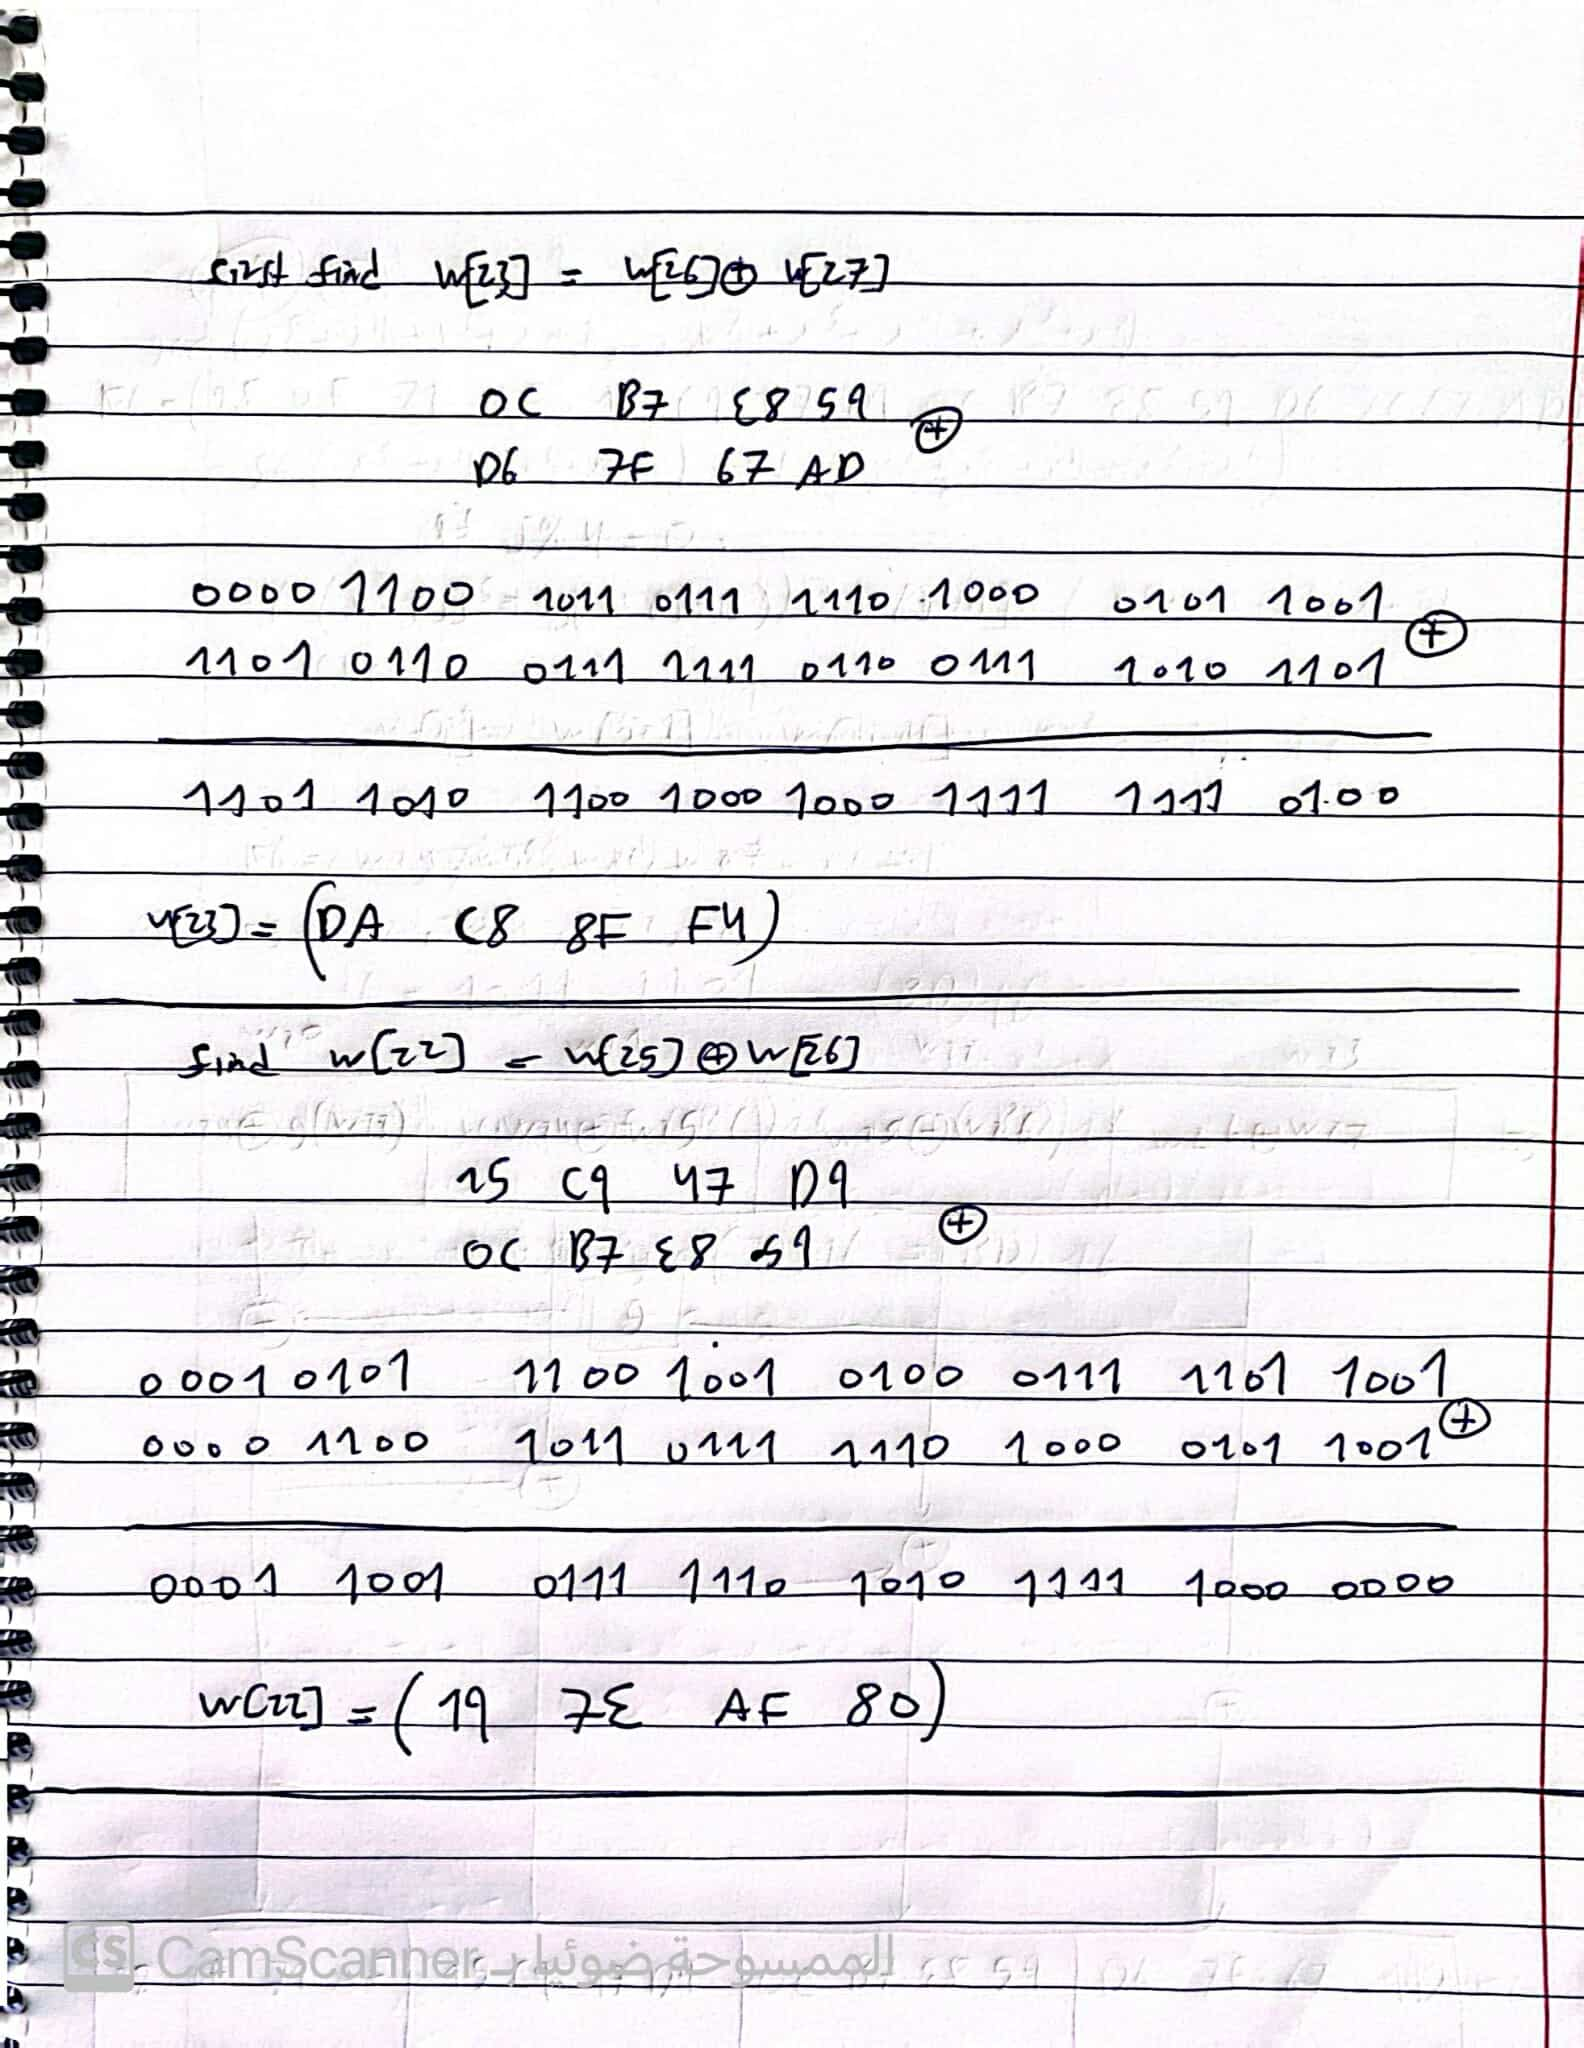 first find w[23] = w[26] ⊕ w[27]
0C B7 E8 59
⊕
D6 7F 67 AD
0000 1100 1011 0111 1110 1000 0101 1001
⊕
1101 0110 0111 1111 0110 0111 1010 1101
1101 1010 1100 1000 1000 1111 1111 0100
w[23] = (DA C8 8F F4)
find w[22] = w[25] ⊕ w[26]
15 C9 47 D9
⊕
0C B7 E8 59
0001 0101 1100 1001 0100 0111 1101 1001
⊕
0000 1100 1011 0111 1110 1000 0101 1001
0001 1001 0111 1110 1010 1111 1000 0000
w[22] = (19 7E AF 80)
CS CamScanner الممسوحة ضوئيا بـ